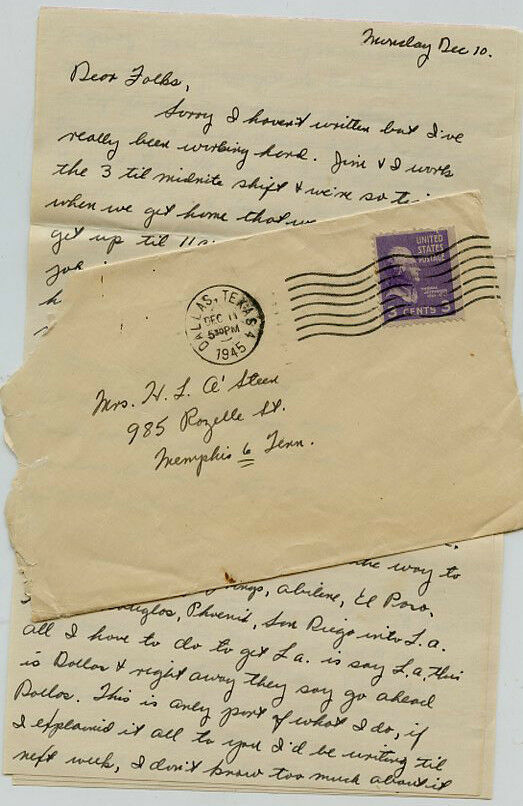 Monday Dec 10.
Dear Folks,
Sorry I haven't written but I've
really been working hard. Jim & I work
the 3 til midnite shift & we're so
when we get home that
get up til 11
UNITED
STATES
POSTAGE
3 CENTS 3
DALLAS, TEXAS 4
DEC 11
5 30 PM
1945
Mrs. H. L. O'Steen
985 Rozelle St.
Memphis 6 Tenn.
the way to
Abilene, El Paso,
Douglas, Phoenix, San Diego into L.A.
all I have to do to get L.a. is say L.a. this
is Dallas & right away they say go ahead
Dallas. This is only part of what I do, if
I explained it all to you I'd be writing til
next week, I don't know too much about it